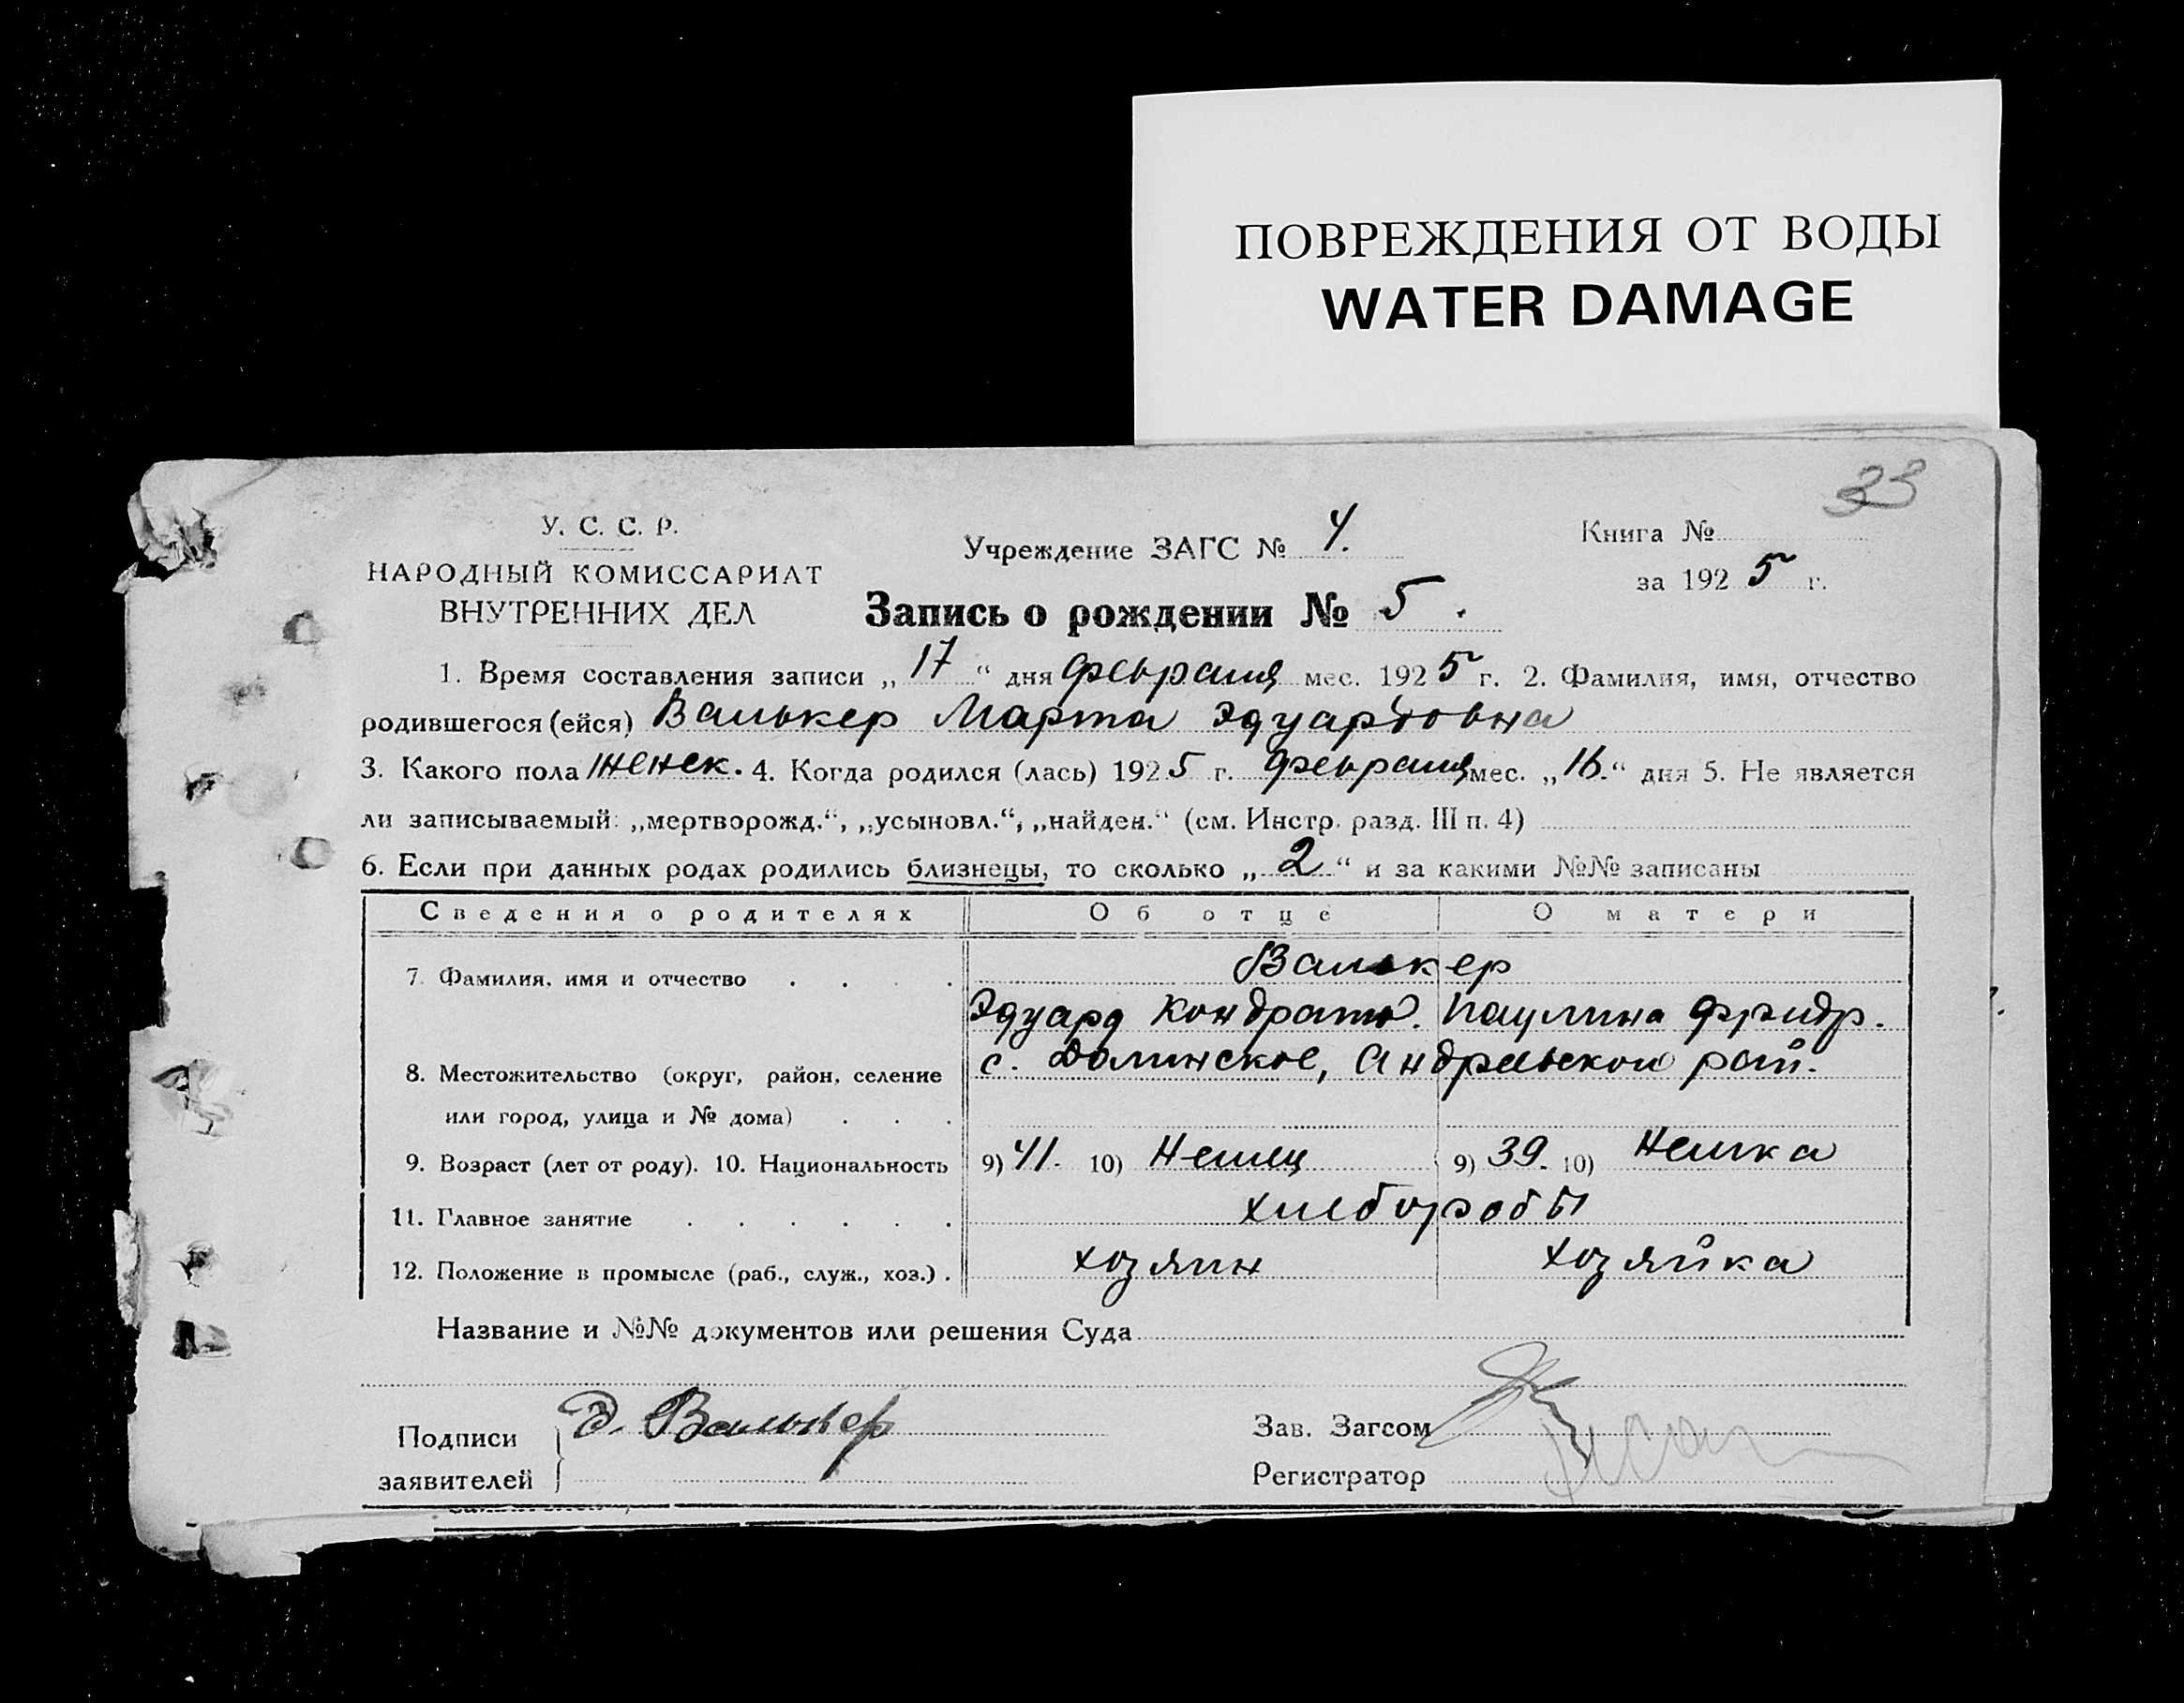 ПОВРЕЖДЕНИЯ ОТ ВОДЫ
WATER DAMAGE
33
У. С. С. Р.
НАРОДНЫЙ КОМИССАРИАТ
ВНУТРЕННИХ ДЕЛ
Учреждение ЗАГС № 4.
Книга №
за 1925 г.
Запись о рождении № 5.
1. Время составления записи „17“ дня февраля мес. 1925 г. 2. Фамилия, имя, отчество
родившегося (ейся) Валькер Марта Эдуардовна
3. Какого пола женск. 4. Когда родился (лась) 1925 г. февраля мес. „16.“ дня 5. Не является
ли записываемый: „мертворожд.“, „усыновл.“, „найден.“ (см. Инстр. разд. III п. 4)
6. Если при данных родах родились близнецы, то сколько „2“ и за какими №№ записаны
Сведения о родителях Об отце О матери
7. Фамилия, имя и отчество . . . . Валькер
Эдуард Кондратов. Паулина Фридр.
8. Местожительство (округ, район, селение с. Долинское, Андреевской рай.
или город, улица и № дома) . . .
9. Возраст (лет от роду). 10. Национальность 9) 41. 10) Немец 9) 39. 10) Немка
11. Главное занятие . . . . . . хлеборобы
12. Положение в промысле (раб., служ., хоз.) . хозяин хозяйка
Название и №№ документов или решения Суда
Подписи заявителей Э. Валькер
Зав. Загсом
Регистратор